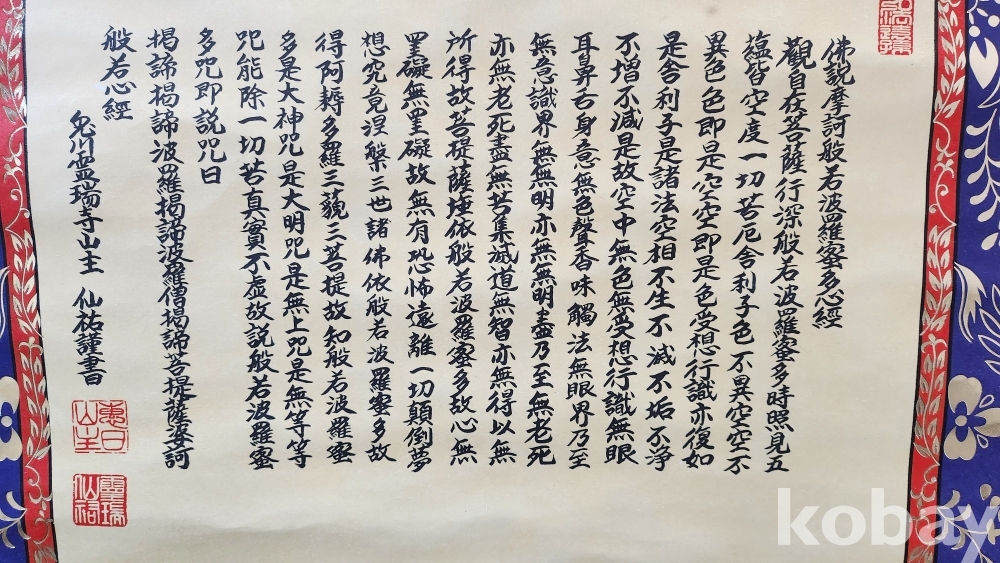 佛說摩訶般若波羅蜜多心經
觀自在菩薩行深般若波羅蜜多時照見五
蘊皆空度一切苦厄舍利子色不異空空不
異色色即是空空即是色受想行識亦復如
是舍利子是諸法空相不生不滅不垢不淨
不增不減是故空中無色無受想行識無眼
耳鼻舌身意無色聲香味觸法無眼界乃至
無意識界無無明亦無無明盡乃至無老死
亦無老死盡無苦集滅道無智亦無得以無
所得故菩提薩埵依般若波羅蜜多故心無
罣礙無罣礙故無有恐怖遠離一切顛倒夢
想究竟涅槃三世諸佛依般若波羅蜜多故
得阿耨多羅三藐三菩提故知般若波羅蜜
多是大神咒是大明咒是無上咒是無等等
咒能除一切苦真實不虛故說般若波羅蜜
多咒即說咒曰
揭諦揭諦波羅揭諦波羅僧揭諦菩提薩婆訶
般若心經
兔川靈瑞寺山主 仙祐謹書
惠日山主
靈瑞仙祐
kobay